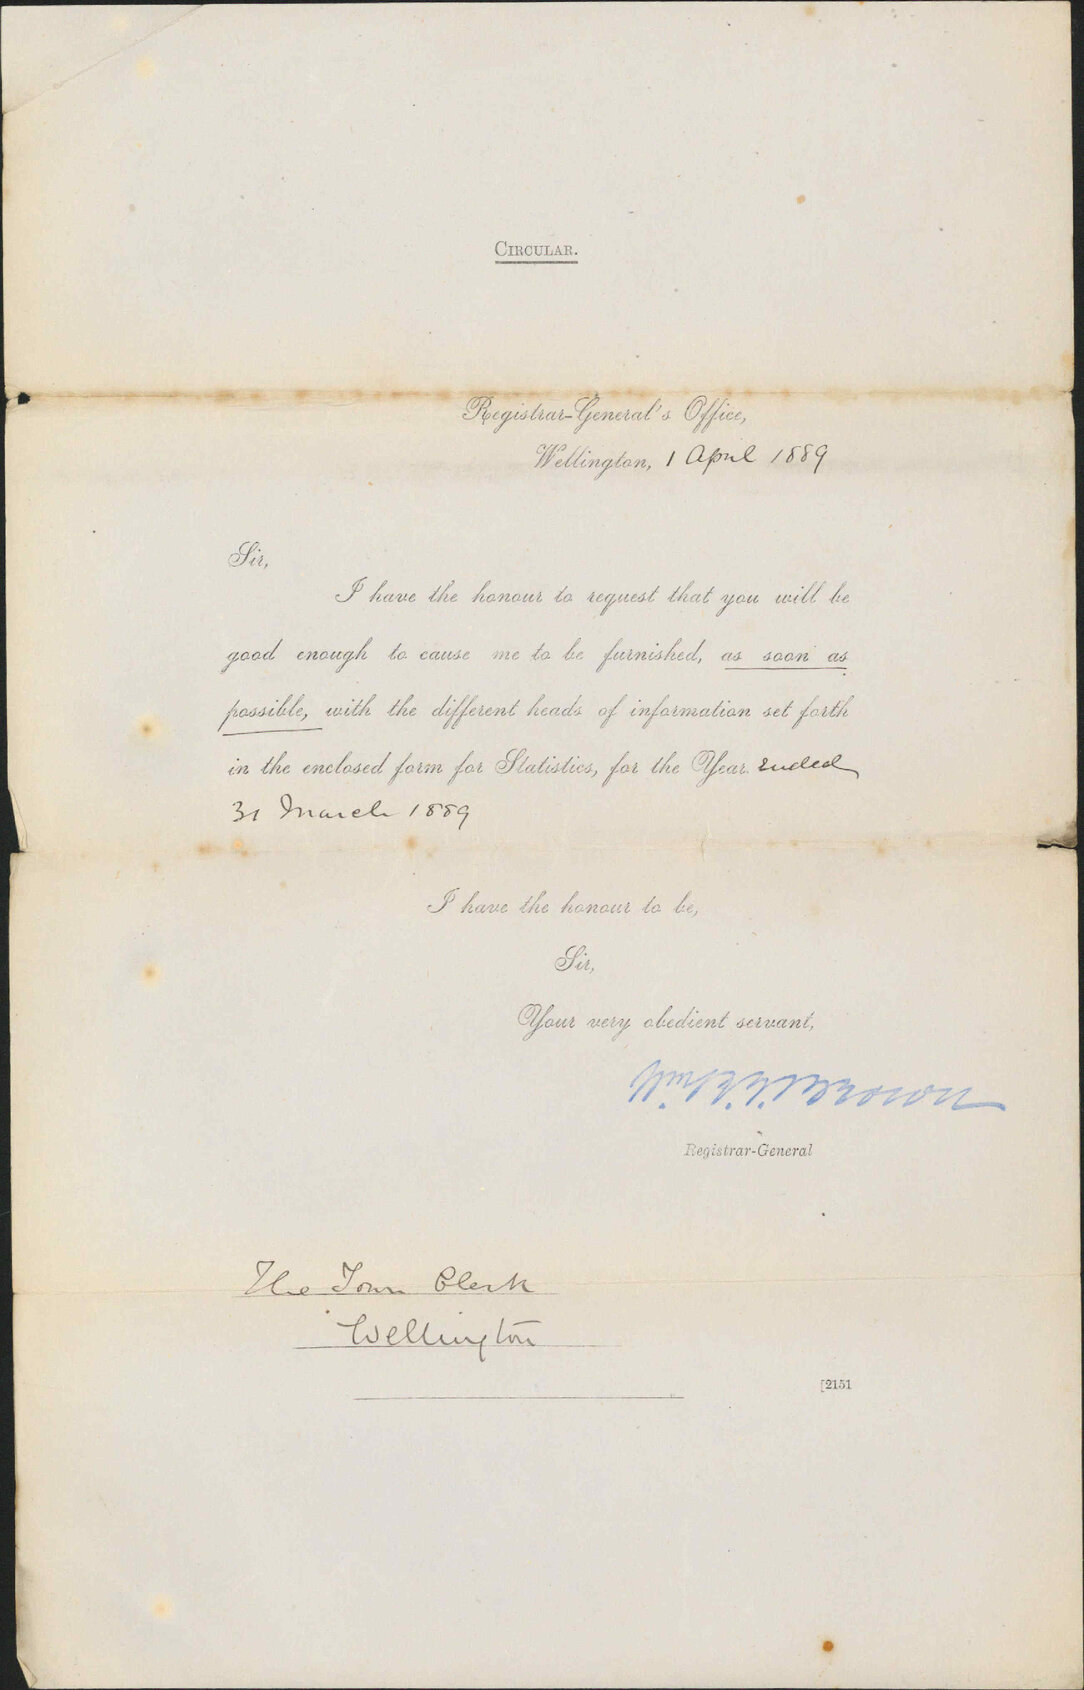 CIRCULAR.
Registrar-General's Office,
Wellington, 1 April 1889
Sir,
I have the honour to request that you will be
good enough to cause me to be furnished, as soon as
possible, with the different heads of information set forth
in the enclosed form for Statistics, for the Year ended
31 March 1889
I have the honour to be,
Sir,
Your very obedient servant,
Registrar-General
The Town Clerk
Wellington
[2151